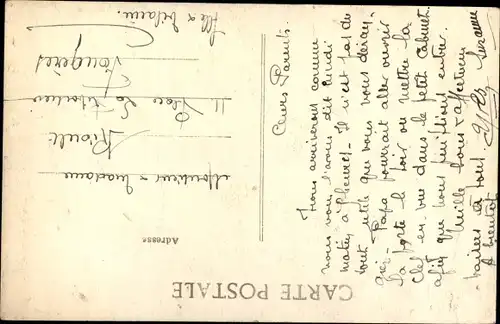 CARTE POSTALE
Chers Parents
Nous arriverons comme
nous vous l'avons dit lundi
matin à 9 heures - Il n'est pas du
tout utile que vous vous déran-
giez - Papa pourrait aller ouvrir
la porte le soir ou mettre la
clef en vue dans le petit Cabinet
afin que nous puissions entrer.
Mille bons & affectueux
baisers à tous
A bientôt
Adresse
Monsieur & Madame
Place
Fougères
Ille & Vilaine.